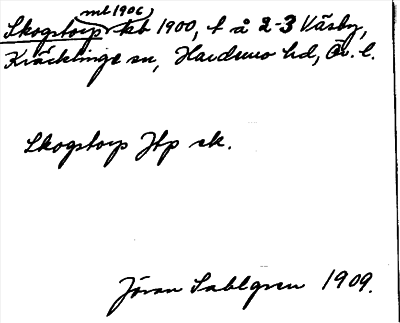 ml 1906
Skogstorp kb 1900, t å 2-3 Väsby,
Kräcklinge sn, Hardemo hd, Ör. l.
Skogstorp Jtp sk.
Jöran Sahlgren 1909.